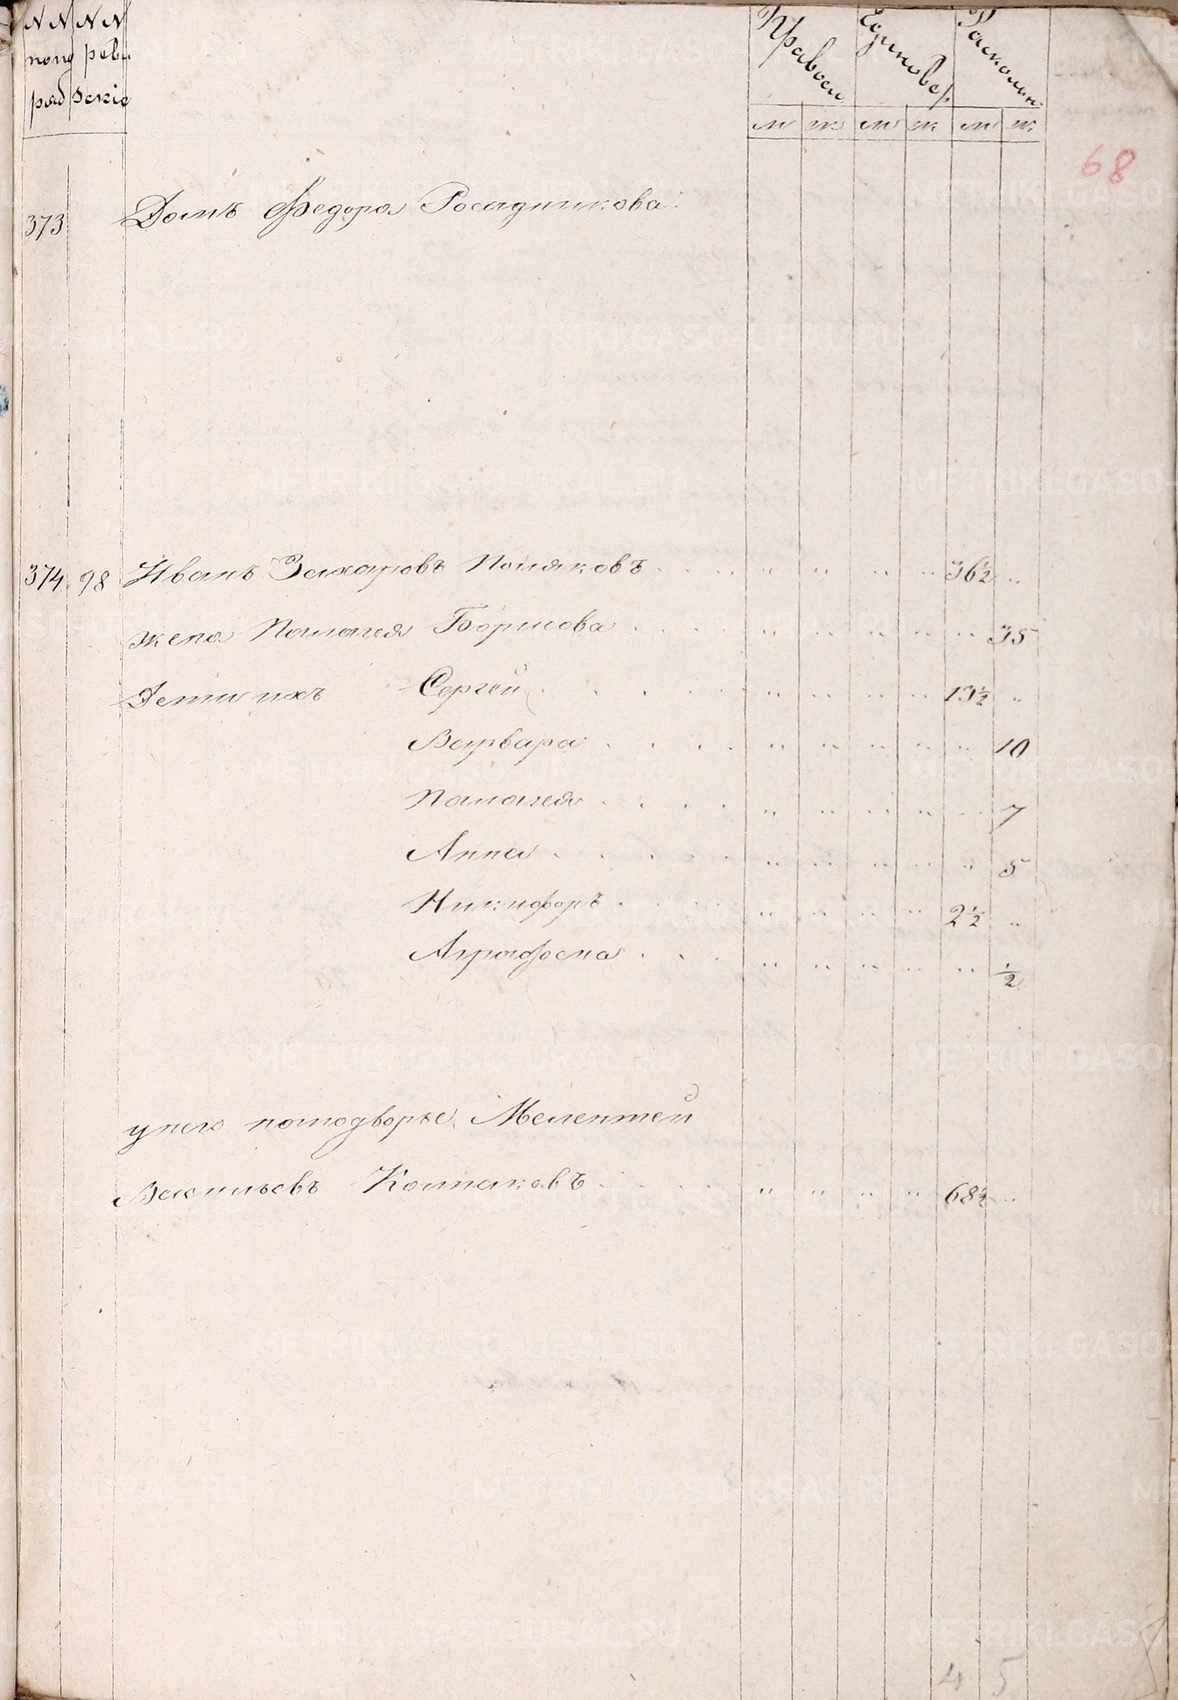 N N N N Правосл Единовер. Расколн.
попо реви
ряд зскіе м ж м ж м ж
68
373 Домъ Федора Росадникова
374 98 Иванъ Захаровъ Поляковъ 36½
жена Палагея Борисова 35
Дети ихъ Сергей 13½
Варвара 10
Палагея 7
Анна 5
Никифоръ 2½
Аграфена ½
унего наподворье Мелентей
Васильевъ Колмаковъ 68½
4 5
METRIKI.GASO-URAL.RU